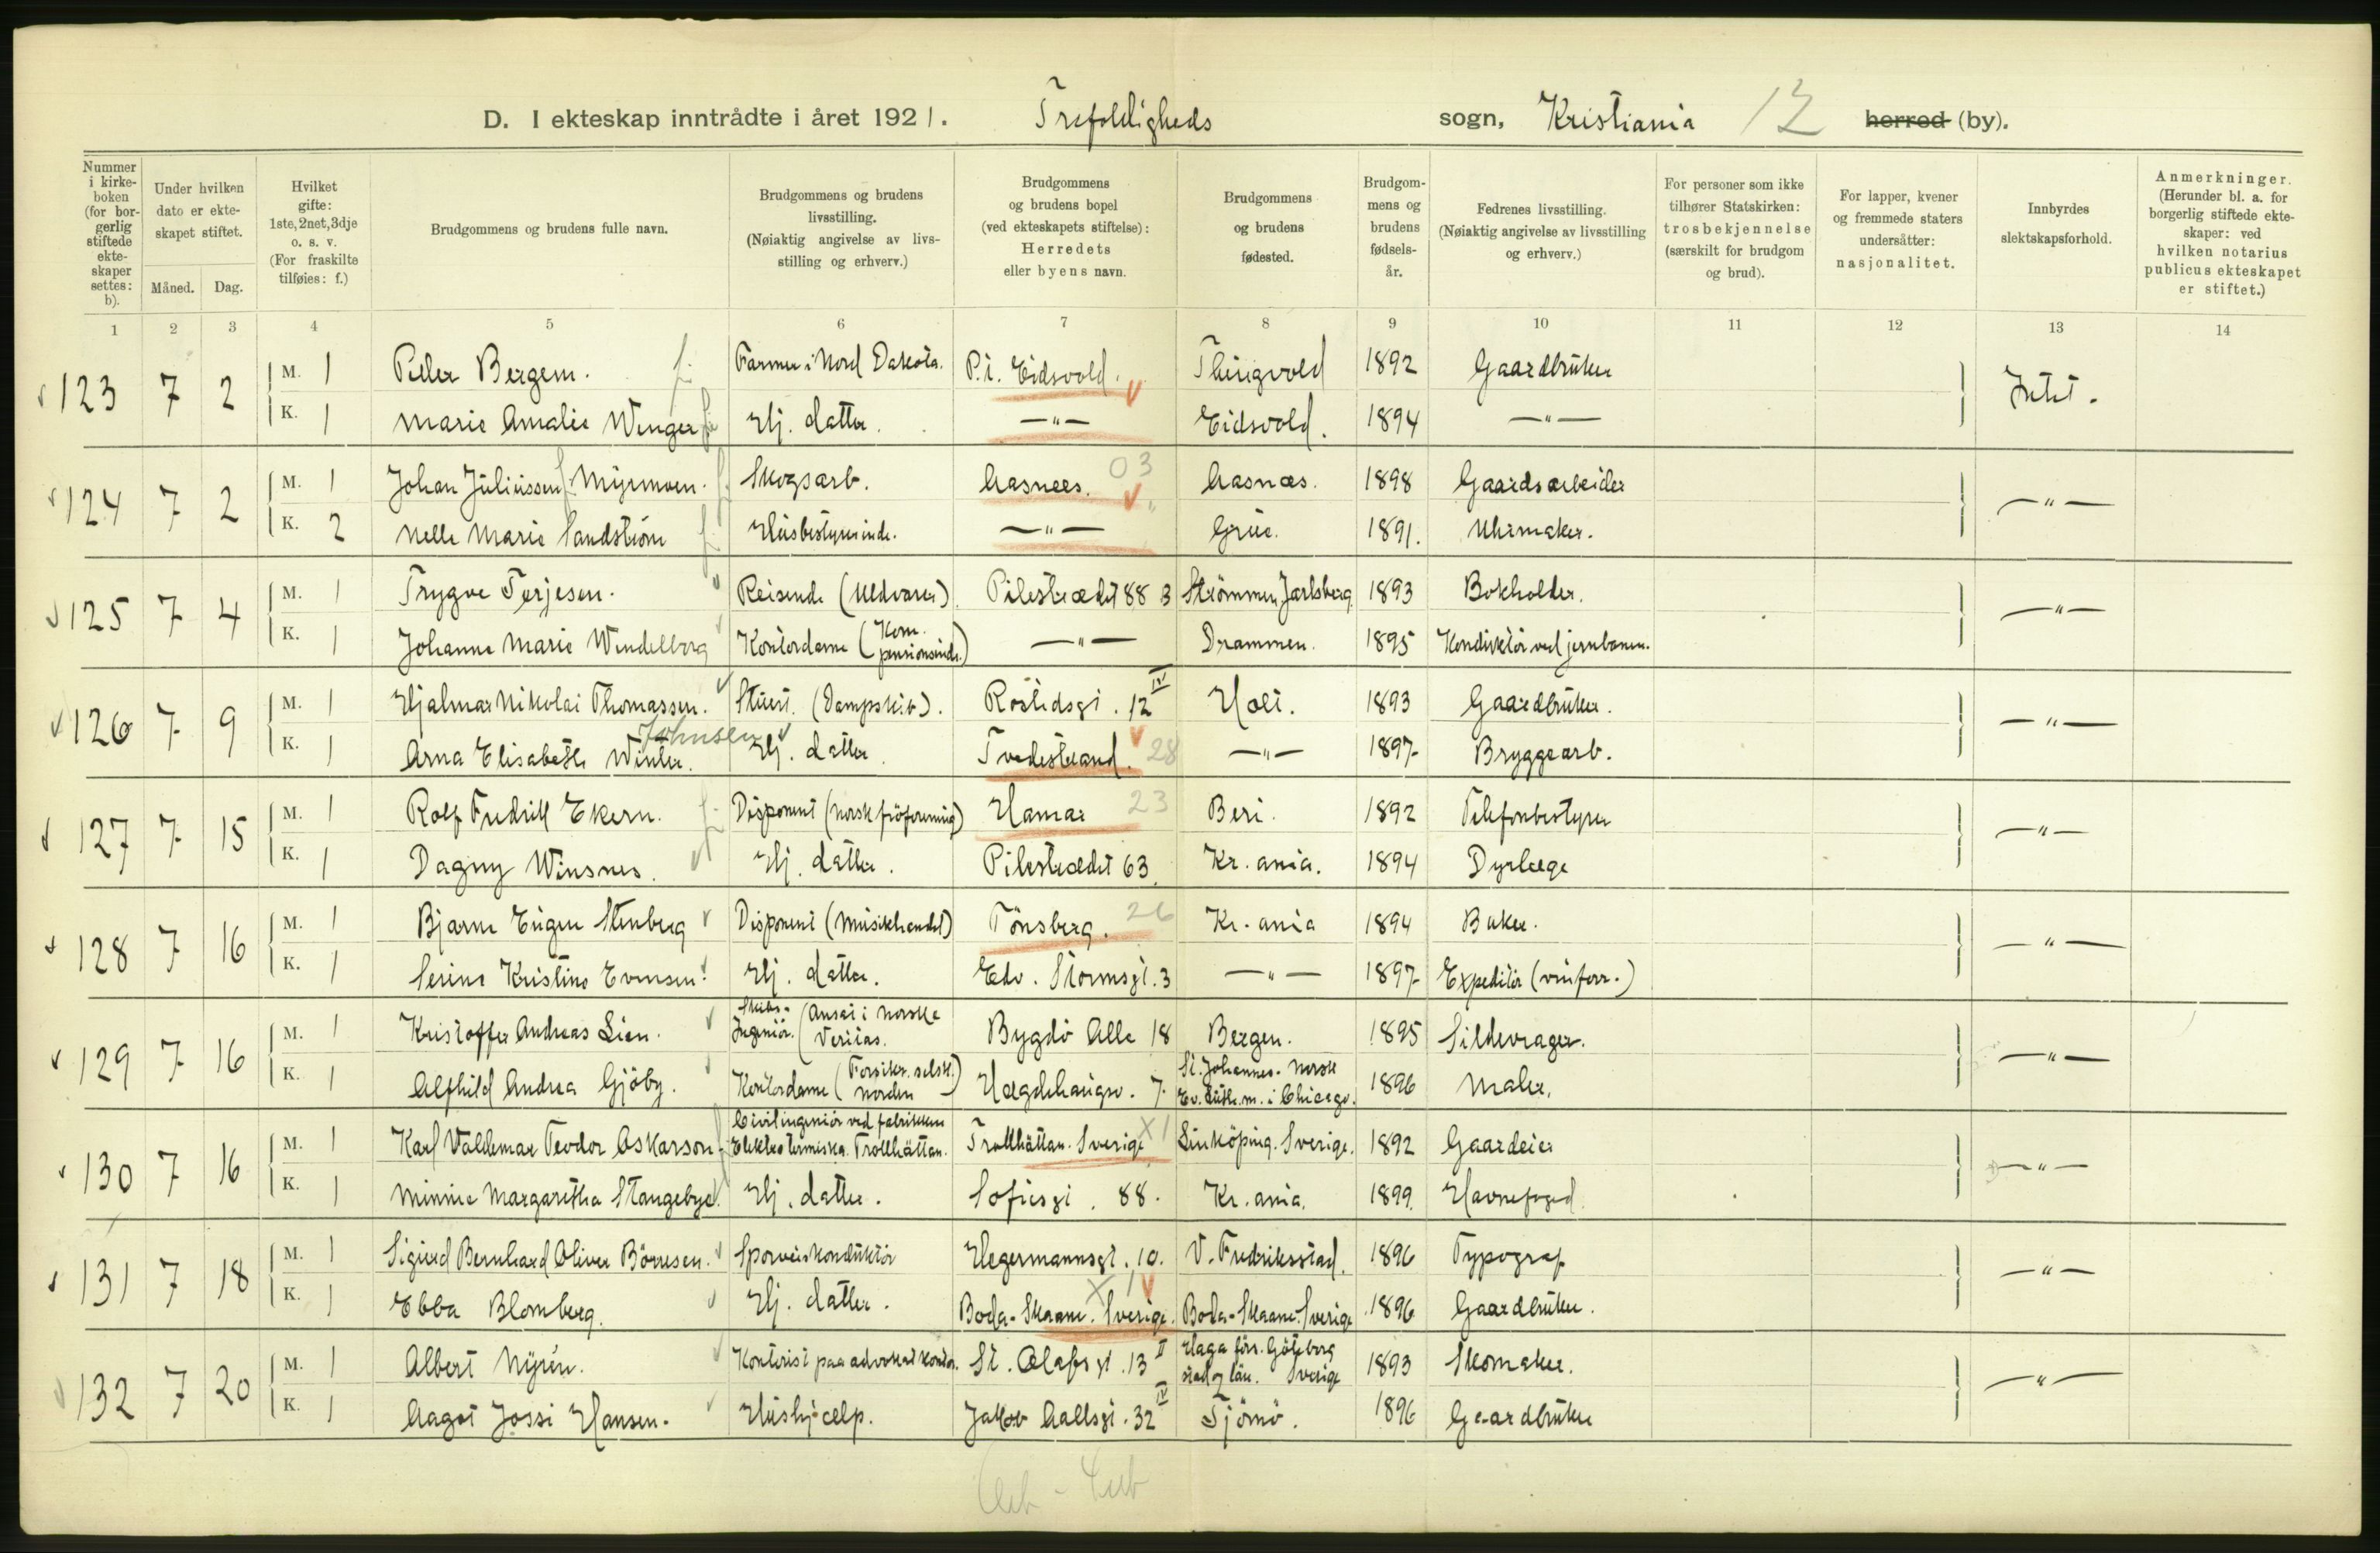 D. I ekteskap inntrådte i året 1921. Trefoldigheds sogn, Kristiania 12 herred (by).
Nummer i kirke-boken (for bor-gerlig stiftede ekte-skaper settes: b).
Under hvilken dato er ekte-skapet stiftet.
Måned. Dag.
Hvilket gifte: 1ste, 2net, 3dje o. s. v. (For fraskilte tilføies: f.)
Brudgommens og brudens fulle navn.
Brudgommens og brudens livsstilling. (Nøiaktig angivelse av livs-stilling og erhverv.)
Brudgommens og brudens bopel (ved ekteskapets stiftelse): Herredets eller byens navn.
Brudgommens og brudens fødested.
Brudgom-mens og brudens fødsels-år.
Fedrenes livsstilling. (Nøiaktig angivelse av livsstilling og erhverv.)
For personer som ikke tilhører Statskirken: trosbekjennelse (særskilt for brudgom og brud).
For lapper, kvener og fremmede staters undersåtter: nasjonalitet.
Innbyrdes slektskapsforhold.
Anmerkninger. (Herunder bl. a. for borgerlig stiftede ekte-skaper: ved hvilken notarius publicus ekteskapet er stiftet.)
1 2 3 4 5 6 7 8 9 10 11 12 13 14
123 7 2 M. 1 Peder Bergem. Farmer i Nord Dakota. P.t. Eidsvold. Thingvold 1892 Gaardbruker Intet.
K. 1 Marie Amalie Wenger Hj. datter. —"— Eidsvold. 1894 —"—
124 7 2 M. 1 Johan Juliussen Myrmoen. Skogsarb. Aasnæs. 03 Aasnæs. 1898 Gaardsarbeider —"—
K. 2 Nelle Marie Sandstrøm Husbestyrerinde. —"— Grue. 1891. Uhrmaker.
125 7 4 M. 1 Trygve Terjesen. Reisende (Uldvarer). Pilestrædet 88 3 Strømmen Jarlsberg. 1893 Bokholder. —"—
K. 1 Johanne Marie Wendelborg Kontordame ( —"— Drammen. 1895 Konduktør ved jernbanen.
126 7 9 M. 1 Hjalmar Nikolai Thomassen. Stuert. (Dampskib). Rostedsgt. 12 IV Holt. 1893 Gaardbruker. —"—
Johnsen
K. 1 Arna Elisabeth Winter. Hj. datter. Tvedestrand. 28 —"— 1897 Bryggearb.
127 7 15 M. 1 Rolf Fredrik Ekern. Disponent (Norsk frøforening) Hamar 23 Beri. 1892 Telefonbestyrer —"—
K. 1 Dagny Winsnes. Hj. datter. Pilestrædet 63. Kr.ania. 1894 Dyrlæge
128 7 16 M. 1 Bjarne Eugen Stenberg Disponent (Musikhandel) Tønsberg. 26 Kr.ania 1894 Baker. —"—
K. 1 Serine Kristine Evensen. Hj. datter. Edv. Stormsgt. 3 —"— 1897 Expeditør (vinforr.)
129 7 16 M. 1 Kristoffer Andreas Lien. Skibs-Ingeniør. (Ansat i Norske Veritas. Bygdø Alle 18 Bergen. 1895 Sildevrager. —"—
K. 1 Alfhild Andrea Gjøby. Kontordame (Forsikr. selsk. Norden) Hægdehaugsv. 7. St. Johannes. Norsk Ev. Luth. m. i Chicago. 1896 Maler.
130 7 16 M. 1 Karl Valdemar Teodor Oskarson. Civilingeniør ved fabrikken Elektrotermiska. Trollhättan. Trollhättan. Sverige X1 Linköping. Sverige. 1892 Gaardeier —"—
K. 1 Minnie Margaretha Stangebye. Hj. datter. Sofiesgt. 88. Kr.ania. 1899. Havnefoged.
131 7 18 M. 1 Sigurd Bernhard Oliver Børresen. Sporveiskonduktør Hegermannsgt. 10. V. Fredriksstad. 1896 Typograf —"—
K. 1 Ebba Blomberg. Hj. datter. Boda-Skaane. Sverige. X1 Boda-Skaane. Sverige 1896 Gaardbruker.
132 7 20 M. 1 Albert Nyrén. Kontorist paa advokatkontor. St. Olafsgt. 13 II Haga förs. Göteborg stad og län. Sverige 1893 Skomaker. —"—
K. 1 Aagot Jossi Hansen. Hushjælp. Jakob Aallsgt. 32 IV Tjømø. 1896 Gaardbruker